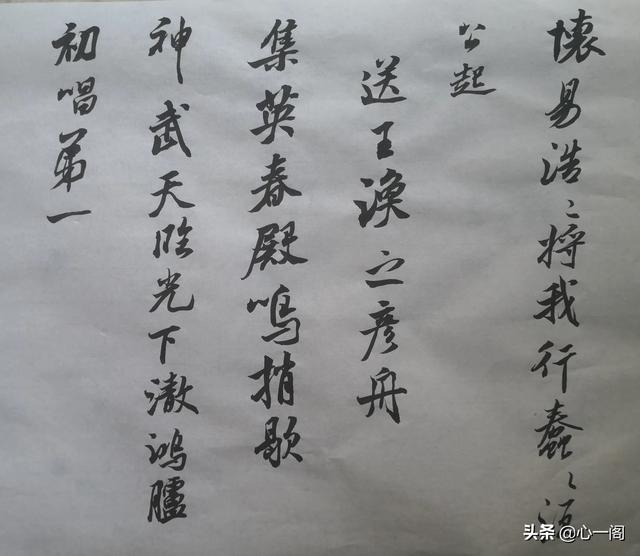 懷易浩〻将我行蠢〻
公起
送王渙之彦舟
集英春殿鳴捎歇
神武天臨光下澈鴻臚
初唱第一
头条 @心一阁